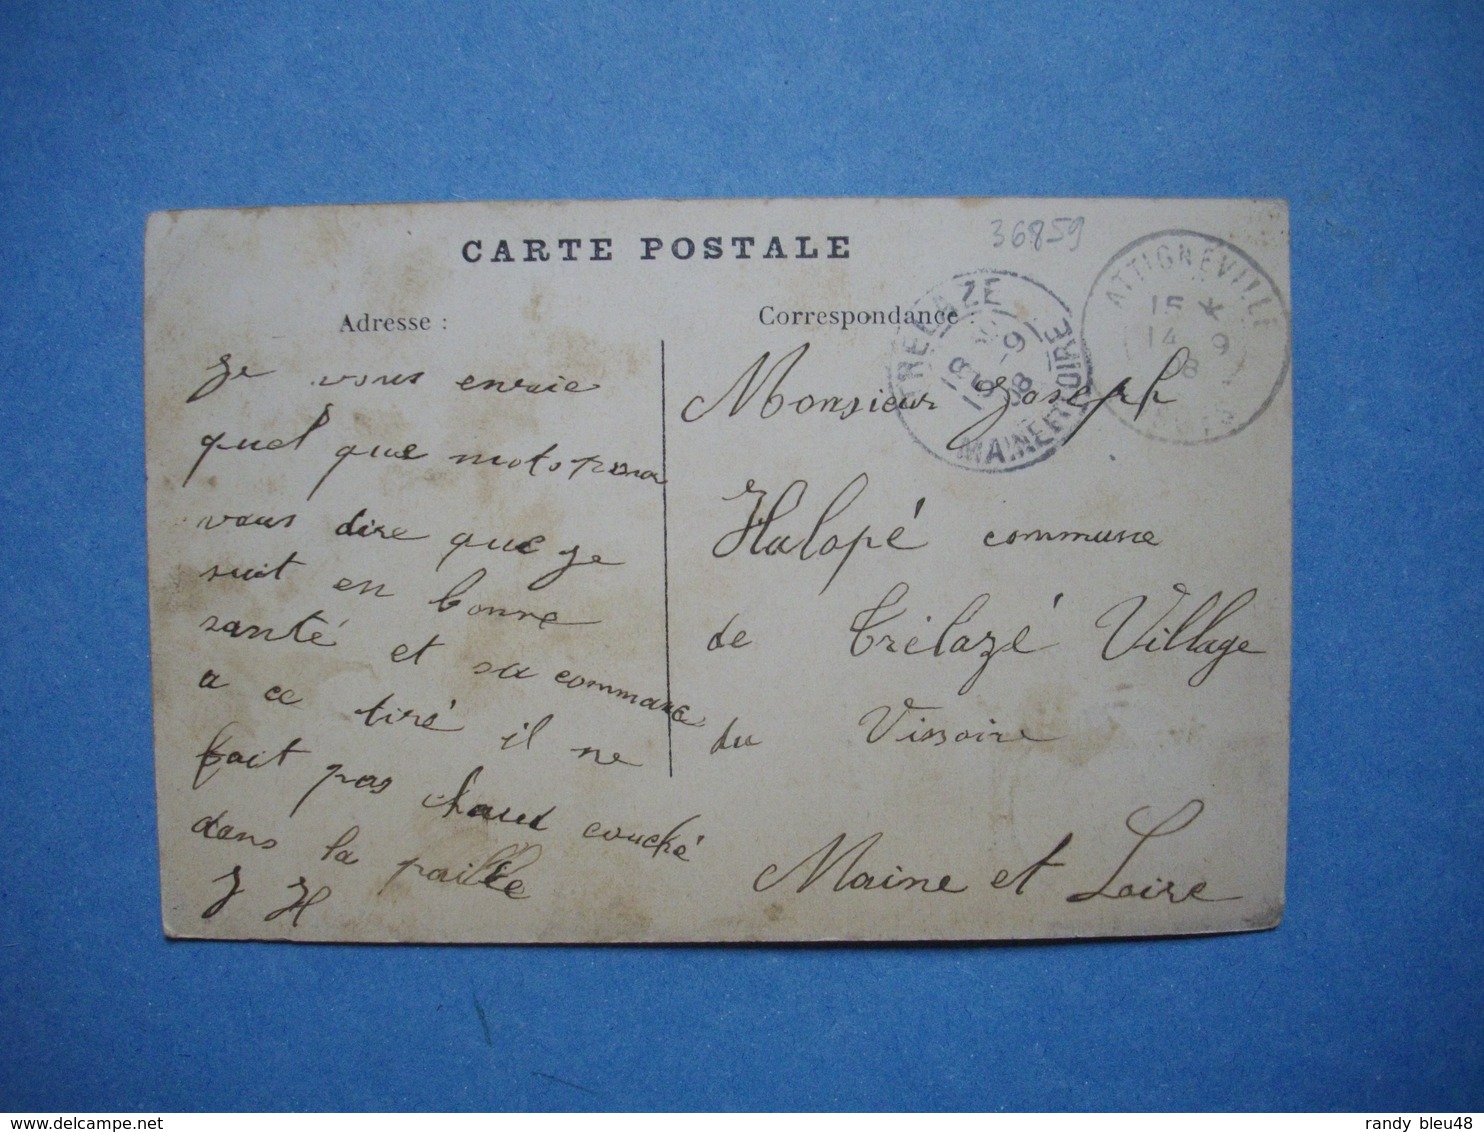 36859
CARTE POSTALE
Adresse :
Correspondance :
TRELAZE
18
15 -9
08
MAINE ET LOIRE
ATTIGNÉVILLE
15 *
14 9
08
VOSGES
Je vous envoie
quel que mots pour
vous dire que je
suit en bonne
santé et sa commance
a ce tiré il ne
fait pas chaud couché
dans la paille
J H
Monsieur Joseph
Halopé commune
de Trélazé Village
du Vissoire
Maine et Loire
randy bleu48